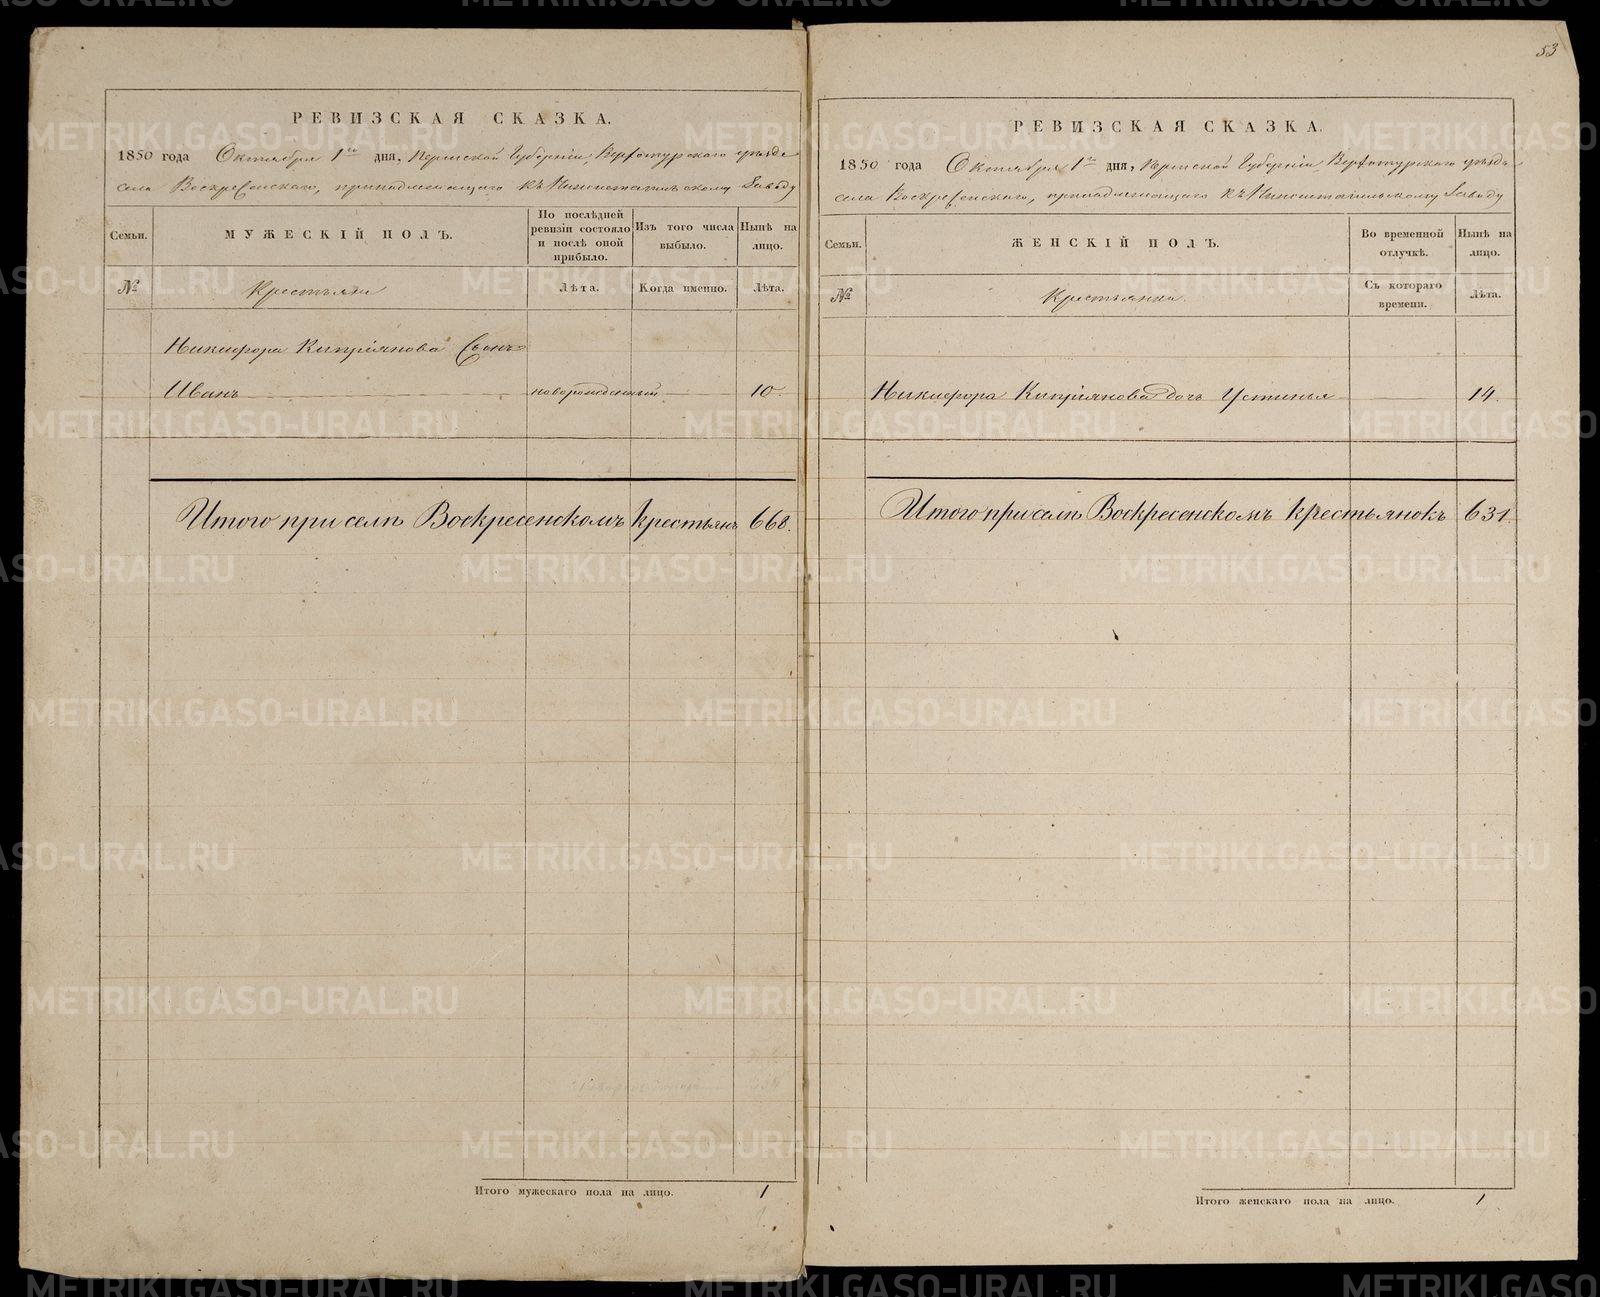 53
РЕВИЗСКАЯ СКАЗКА.
1850 года Октября 1го дня, Пермской Губерніи Верхотурскаго уѣзда
села Воскресенскаго, принадлежащаго къ Нижнетагильскому Заводу
Семьи.
МУЖЕСКІЙ ПОЛЪ.
По послѣдней ревизіи состояло и послѣ оной прибыло.
Изъ того числа выбыло.
Нынѣ на лицо.
№
Крестьяне
Лѣта.
Когда именно.
Лѣта.
Никифора Кипріянова Сынъ
Иванъ новорожденный 10.
Итого при селѣ Воскресенскомъ крестьянъ 668.
Итого мужескаго пола на лицо. 1
РЕВИЗСКАЯ СКАЗКА.
1850 года Октября 1го дня, Пермской Губерніи Верхотурскаго уѣзда
села Воскресенскаго, принадлежащаго къ Нижнетагильскому Заводу
Семьи.
ЖЕНСКІЙ ПОЛЪ.
Во временной отлучкѣ.
Нынѣ на лицо.
№
Крестьянки.
Съ котораго времени.
Лѣта.
Никифора Кипріянова дочь Устинья 14.
Итого при селѣ Воскресенскомъ крестьянокъ 631.
Итого женскаго пола на лицо. 1
METRIKI.GASO-URAL.RU